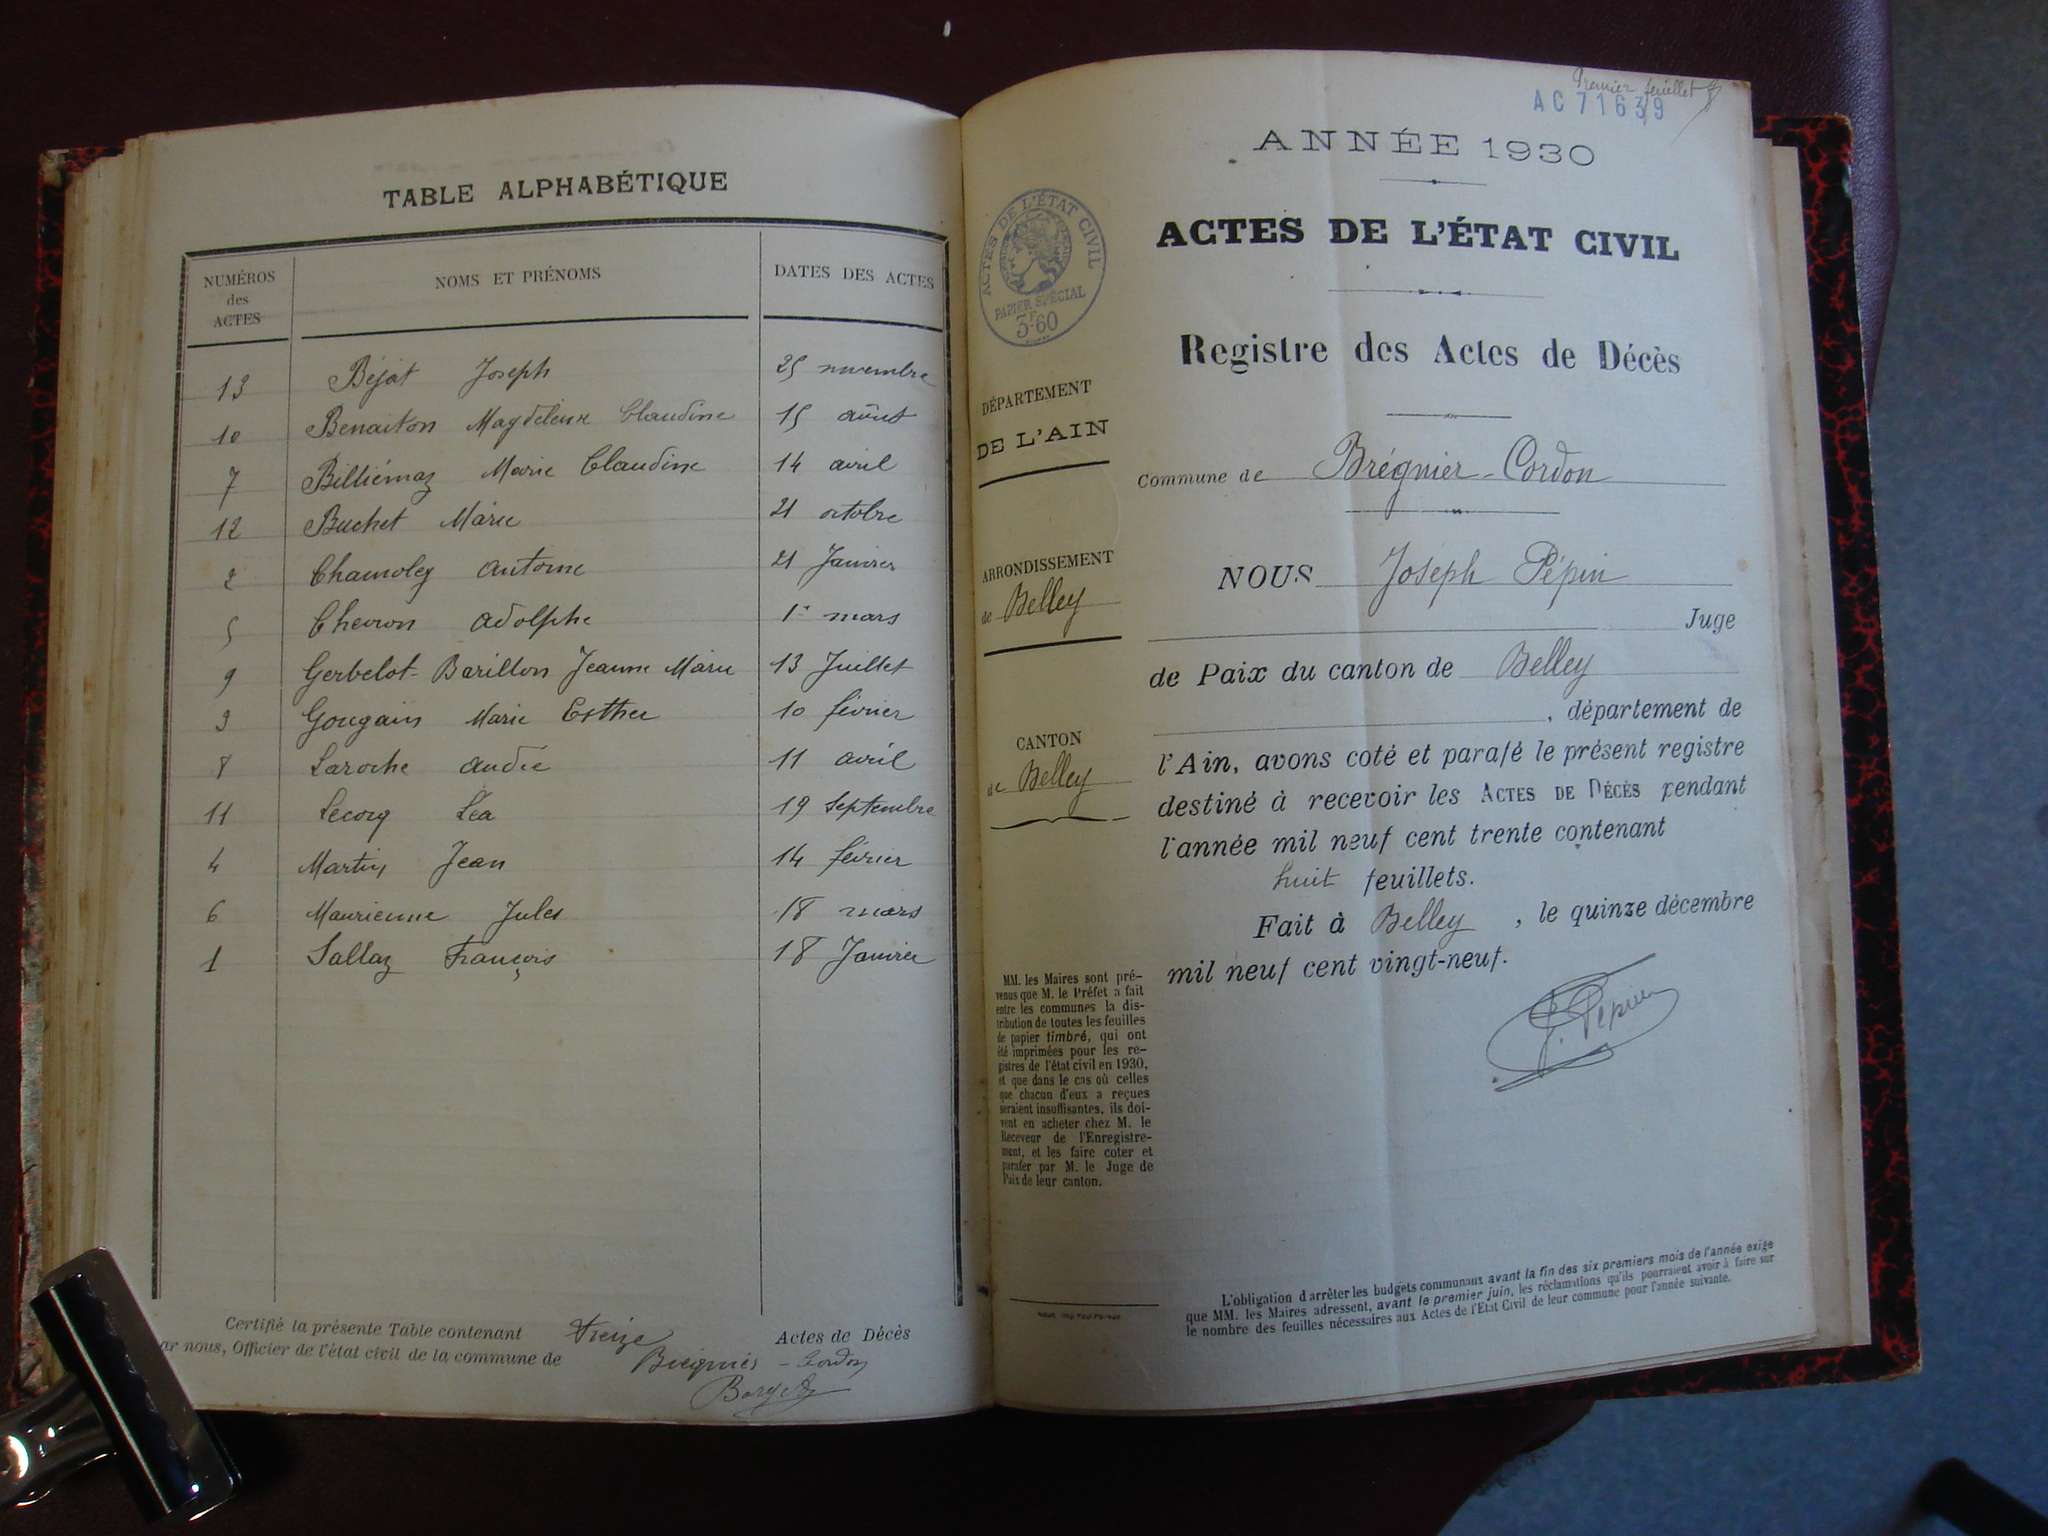 TABLE ALPHABÉTIQUE
NUMÉROS des ACTES NOMS ET PRÉNOMS DATES DES ACTES
13 Béjat Joseph 25 novembre
10 Benaiton Magdeleine Claudine 15 août
7 Billiémaz Marie Claudine 14 avril
12 Buchet Marie 21 octobre
2 Chamoley Antoine 21 Janvier
5 Chevron Adolphe 1er mars
9 Gerbelot-Barillon Jeanne Marie 13 Juillet
3 Gougain Marie Esther 10 février
8 Laroche Andre 11 avril
11 Lecorq Léa 19 Septembre
4 Martin Jean 14 février
6 Maurienne Jules 18 mars
1 Sallaz François 18 Janvier
Certifié la présente Table contenant treize Actes de Décès
ar nous, Officier de l'état civil de la commune de Brégnier-Cordon
Premier feuillet
AC 71639
ANNÉE 1930
ACTES DE L'ÉTAT CIVIL
Registre des Actes de Décès
ACTES DE L'ÉTAT CIVIL
PAPIER SPÉCIAL
3F60
DÉPARTEMENT
DE L'AIN
ARRONDISSEMENT
de Belley
CANTON
de Belley
MM. les Maires sont pré-
venus que M. le Préfet a fait
entre les communes la dis-
tribution de toutes les feuilles
de papier timbré, qui ont
été imprimées pour les re-
gistres de l'état civil en 1930,
et que dans le cas où celles
que chacun d'eux a reçues
seraient insuffisantes, ils doi-
vent en acheter chez M. le
Receveur de l'Enregistre-
ment, et les faire coter et
parafer par M. le Juge de
Paix de leur canton.
Commune de Brégnier-Cordon
NOUS Joseph Pépin
Juge
de Paix du canton de Belley
, département de
l'Ain, avons coté et parafé le présent registre
destiné à recevoir les ACTES DE DÉCÈS pendant
l'année mil neuf cent trente contenant
huit feuillets.
Fait à Belley , le quinze décembre
mil neuf cent vingt-neuf.
J. Pépin
L'obligation d'arrêter les budgets communaux avant la fin des six premiers mois de l'année exige
que MM. les Maires adressent, avant le premier juin, les réclamations qu'ils pourraient avoir à faire sur
le nombre des feuilles nécessaires aux Actes de l'Etat Civil de leur commune pour l'année suivante.